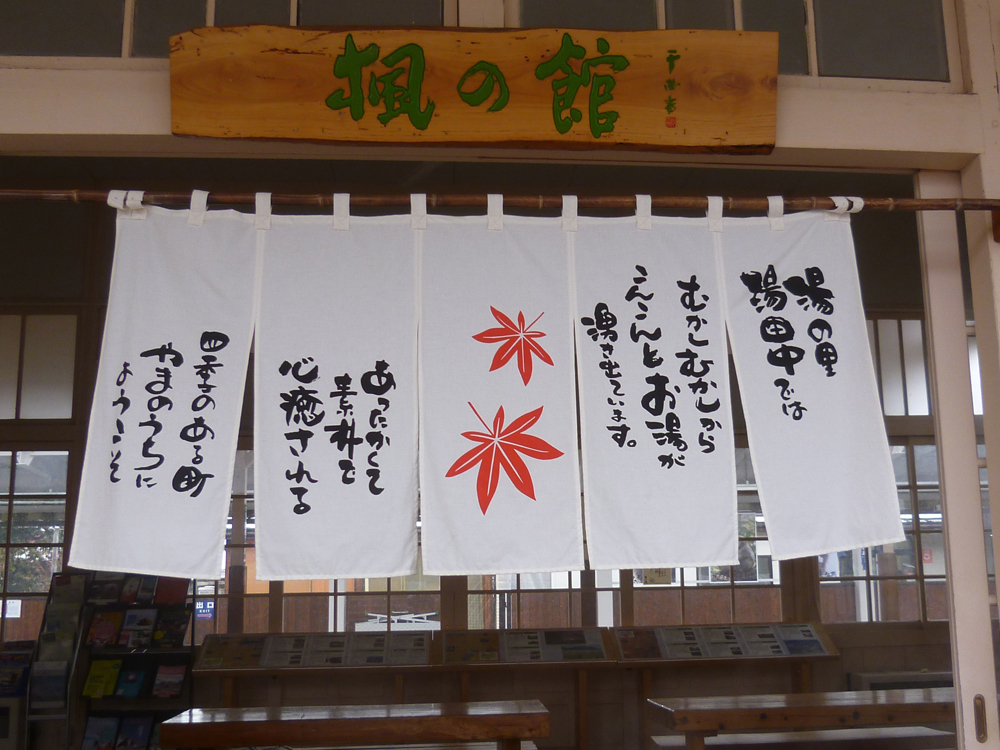 楓の館
湯の里
湯田中では
むかしむかしから
こんこんとお湯が
湧き出ています。
あったかくて
素朴で
心癒される
四季のある町
やまのうちに
ようこそ
出口